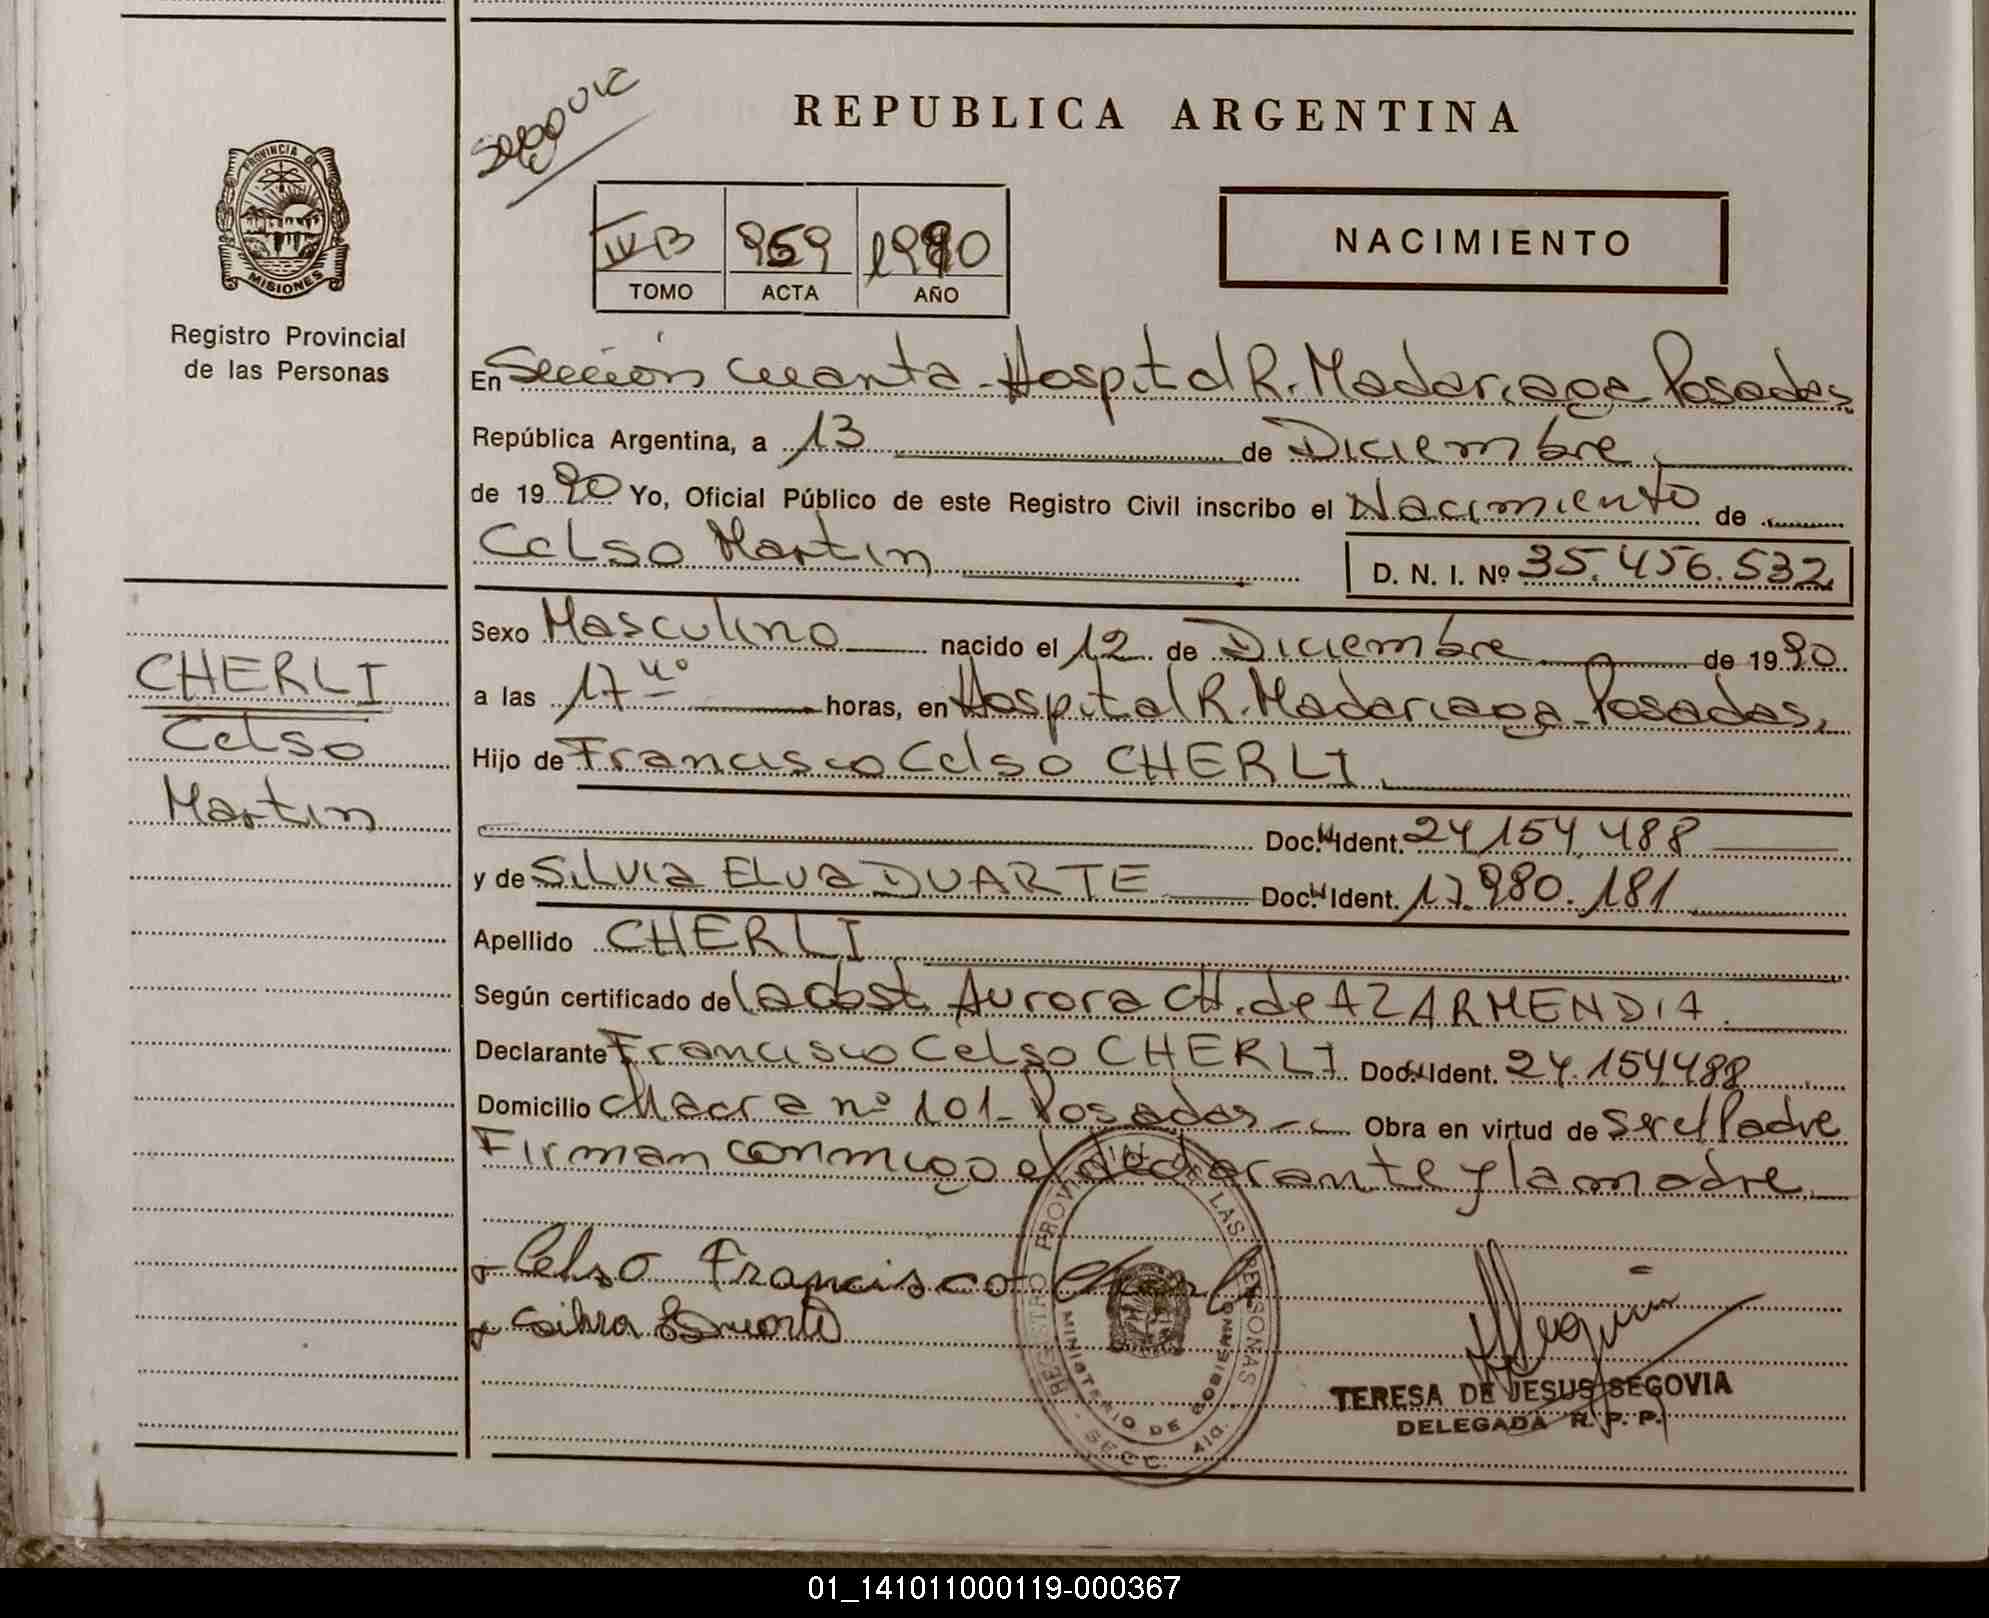 REPUBLICA ARGENTINA
PROVINCIA DE
MISIONES
Registro Provincial
de las Personas
IV B 959 1990
TOMO ACTA AÑO
NACIMIENTO
En Sección Cuarta - Hospital R. Madariaga Posadas
República Argentina, a 13 de Diciembre
de 1990 Yo, Oficial Público de este Registro Civil inscribo el Nacimiento de
Celso Martin D. N. I. Nº 35.456.532
CHERLI
Celso
Martin
Sexo Masculino nacido el 12 de Diciembre de 1990
a las 17 40 horas, en Hospital R. Madariaga - Posadas.
Hijo de Francisco Celso CHERLI
Doc. Ident. 24 154 488
y de Silvia Elva DUARTE Doc. Ident. 17.980.181
Apellido CHERLI
Según certificado de la obst. Aurora CH. de AZARMENDIA
Declarante Francisco Celso CHERLI Doc. Ident. 24.154488
Domicilio Chacra nº 101 - Posadas - Obra en virtud de ser el Padre
Firman conmigo el declarante y la madre
Celso Francisco Cherli
REGISTRO PROVINCIAL DE LAS PERSONAS
MINISTERIO DE GOBIERNO
SECC. 4ta.
TERESA DE JESUS SEGOVIA
DELEGADA R. P. P.
01_141011000119-000367